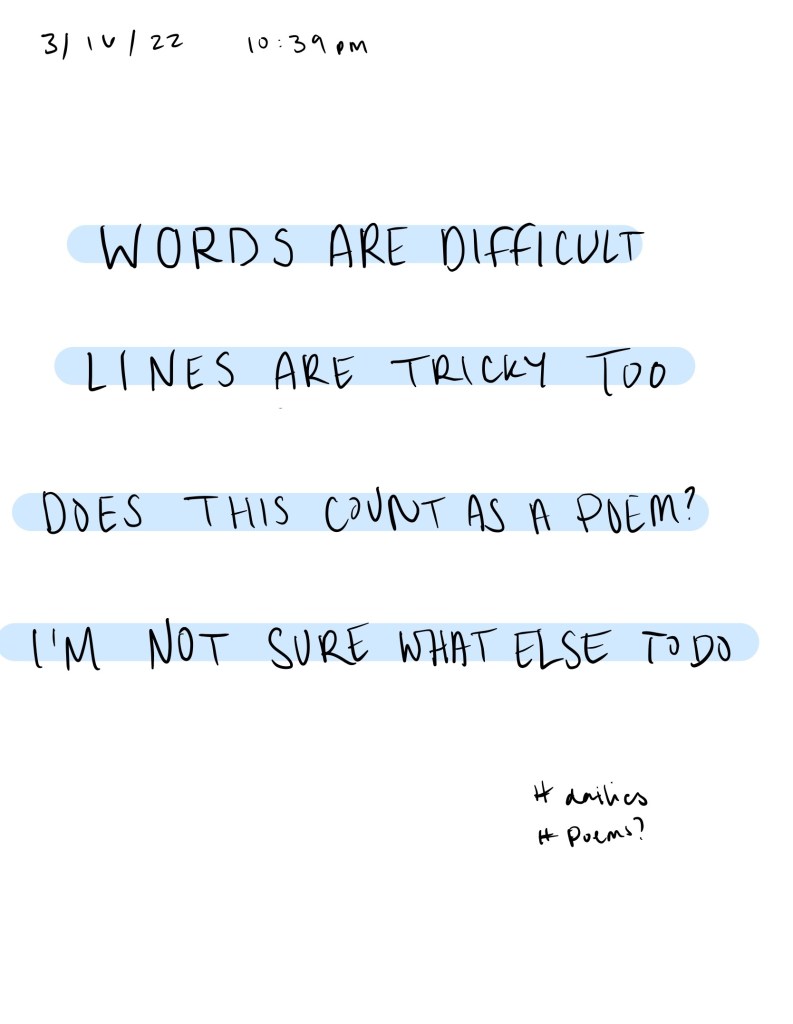 3/10/22 10:39 pm
WORDS ARE DIFFICULT
LINES ARE TRICKY TOO
DOES THIS COUNT AS A POEM?
I'M NOT SURE WHAT ELSE TO DO
# dailies
# Poems?